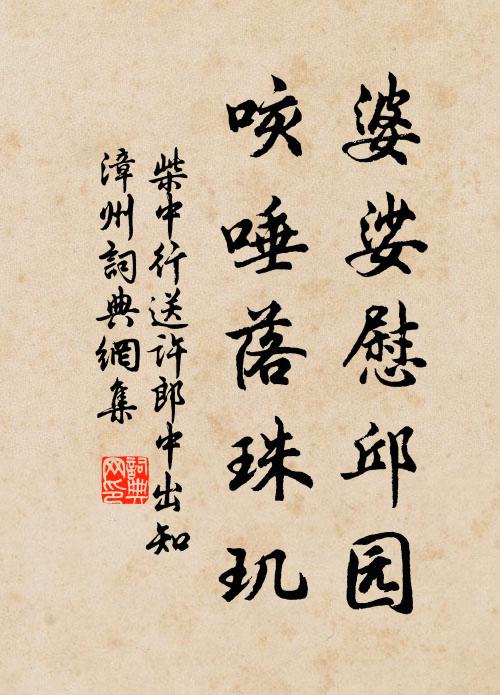 婆娑慰邱园
咳唾落珠玑
柴中行送许郎中出知
漳州詞典網集
詞典网印